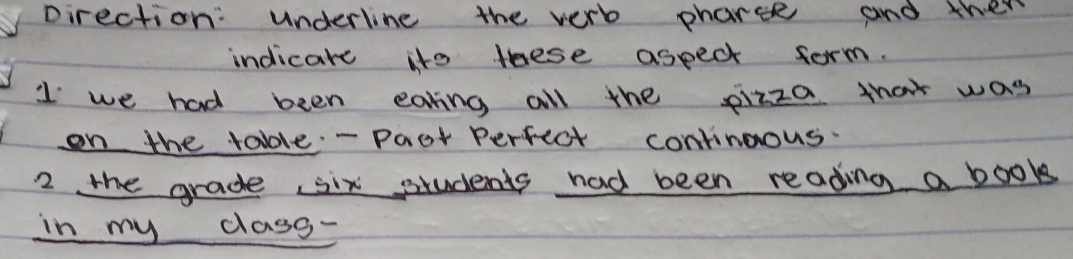 Direction: underline the verb pharse and then
indicate its these aspect form.
1. we had been eating all the pizza that was
on the table. - Past Perfect continuous.
2 the grade six students had been reading a book
in my class-